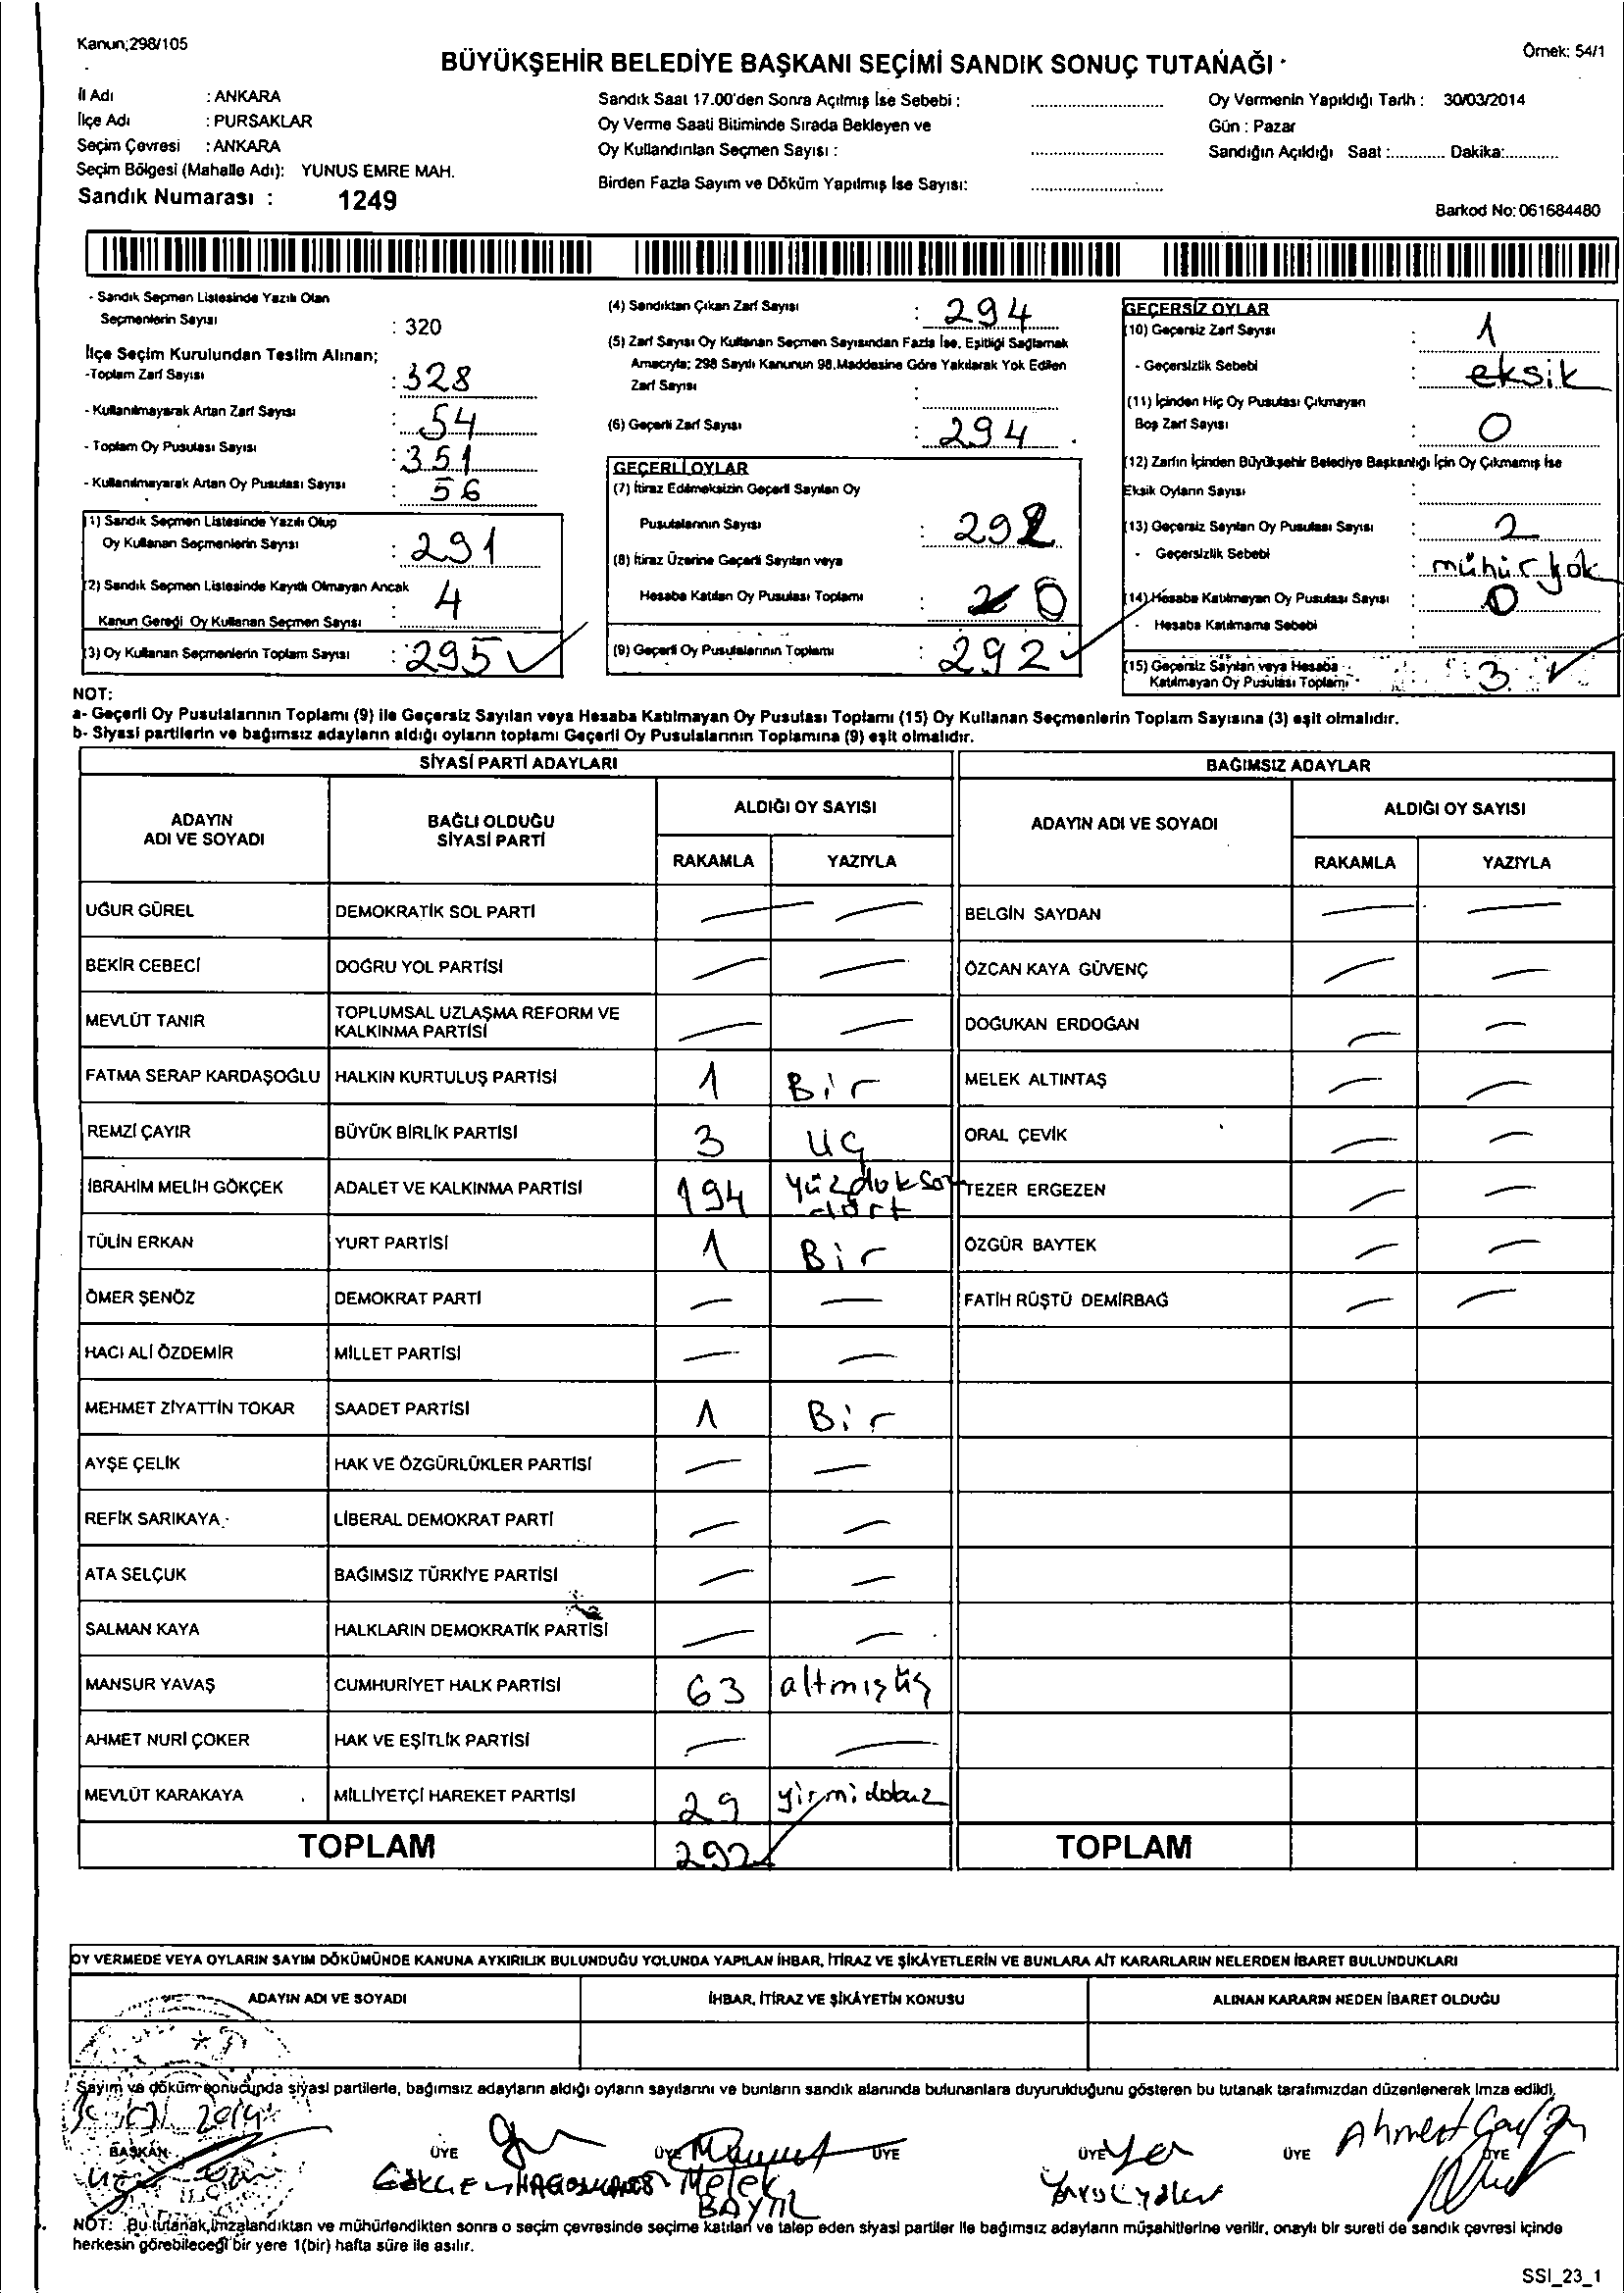 Kanun;298/105
BÜYÜKŞEHİR BELEDİYE BAŞKANI SEÇİMİ SANDIK SONUÇ TUTANAĞI
Örnek: 54/1
İl Adı : ANKARA
İlçe Adı : PURSAKLAR
Seçim Çevresi : ANKARA
Seçim Bölgesi (Mahalle Adı): YUNUS EMRE MAH.
Sandık Numarası : 1249
Sandık Saat 17.00'den Sonra Açılmış İse Sebebi :
Oy Verme Saati Bitiminde Sırada Bekleyen ve
Oy Kullandırılan Seçmen Sayısı :
Birden Fazla Sayım ve Döküm Yapılmış İse Sayısı:
Oy Vermenin Yapıldığı Tarih : 30/03/2014
Gün : Pazar
Sandığın Açıldığı Saat :............ Dakika:............
Barkod No: 061684480
- Sandık Seçmen Listesinde Yazılı Olan
Seçmenlerin Sayısı : 320
İlçe Seçim Kurulundan Teslim Alınan;
-Toplam Zarf Sayısı : 328
- Kullanılmayarak Artan Zarf Sayısı : 54
- Toplam Oy Pusulası Sayısı : 351
- Kullanılmayarak Artan Oy Pusulası Sayısı : 56
(1) Sandık Seçmen Listesinde Yazılı Olup
Oy Kullanan Seçmenlerin Sayısı : 291
(2) Sandık Seçmen Listesinde Kayıtlı Olmayan Ancak
Kanun Gereği Oy Kullanan Seçmen Sayısı : 4
(3) Oy Kullanan Seçmenlerin Toplam Sayısı : 295
(4) Sandıktan Çıkan Zarf Sayısı : 294
(5) Zarf Sayısı Oy Kullanan Seçmen Sayısından Fazla İse, Eşitliği Sağlamak
Amacıyla; 298 Sayılı Kanunun 98.Maddesine Göre Yakılarak Yok Edilen
Zarf Sayısı :
(6) Geçerli Zarf Sayısı : 294
GEÇERLİ OYLAR
(7) İtiraz Edilmeksizin Geçerli Sayılan Oy
Pusulalarının Sayısı : 292
(8) İtiraz Üzerine Geçerli Sayılan veya
Hesaba Katılan Oy Pusulası Toplamı : 0
(9) Geçerli Oy Pusulalarının Toplamı : 292
GEÇERSİZ OYLAR
(10) Geçersiz Zarf Sayısı : 1
- Geçersizlik Sebebi : eksik
(11) İçinden Hiç Oy Pusulası Çıkmayan
Boş Zarf Sayısı : 0
(12) Zarfın İçinden Büyükşehir Belediye Başkanlığı İçin Oy Çıkmamış İse
Eksik Oyların Sayısı :
(13) Geçersiz Sayılan Oy Pusulası Sayısı : 2
- Geçersizlik Sebebi : mühür yok
(14) Hesaba Katılmayan Oy Pusulası Sayısı : 0
- Hesaba Katılmama Sebebi :
(15) Geçersiz Sayılan veya Hesaba
Katılmayan Oy Pusulası Toplamı : 3
NOT:
a- Geçerli Oy Pusulalarının Toplamı (9) ile Geçersiz Sayılan veya Hesaba Katılmayan Oy Pusulası Toplamı (15) Oy Kullanan Seçmenlerin Toplam Sayısına (3) eşit olmalıdır.
b- Siyasi partilerin ve bağımsız adayların aldığı oyların toplamı Geçerli Oy Pusulalarının Toplamına (9) eşit olmalıdır.
SİYASİ PARTİ ADAYLARI
ADAYIN ADI VE SOYADI
BAĞLI OLDUĞU SİYASİ PARTİ
ALDIĞI OY SAYISI
RAKAMLA YAZIYLA
UĞUR GÜREL DEMOKRATİK SOL PARTİ — —
BEKİR CEBECİ DOĞRU YOL PARTİSİ — —
MEVLÜT TANIR TOPLUMSAL UZLAŞMA REFORM VE KALKINMA PARTİSİ — —
FATMA SERAP KARDAŞOĞLU HALKIN KURTULUŞ PARTİSİ 1 Bir
REMZİ ÇAYIR BÜYÜK BİRLİK PARTİSİ 3 üç
İBRAHİM MELİH GÖKÇEK ADALET VE KALKINMA PARTİSİ 194 yüzdoksan dört
TÜLİN ERKAN YURT PARTİSİ 1 Bir
ÖMER ŞENÖZ DEMOKRAT PARTİ — —
HACI ALİ ÖZDEMİR MİLLET PARTİSİ — —
MEHMET ZİYATTİN TOKAR SAADET PARTİSİ 1 Bir
AYŞE ÇELİK HAK VE ÖZGÜRLÜKLER PARTİSİ — —
REFİK SARIKAYA LİBERAL DEMOKRAT PARTİ — —
ATA SELÇUK BAĞIMSIZ TÜRKİYE PARTİSİ — —
SALMAN KAYA HALKLARIN DEMOKRATİK PARTİSİ — —
MANSUR YAVAŞ CUMHURİYET HALK PARTİSİ 63 altmışüç
AHMET NURİ ÇOKER HAK VE EŞİTLİK PARTİSİ — —
MEVLÜT KARAKAYA MİLLİYETÇİ HAREKET PARTİSİ 29 yirmidokuz
TOPLAM 292
BAĞIMSIZ ADAYLAR
ADAYIN ADI VE SOYADI
ALDIĞI OY SAYISI
RAKAMLA YAZIYLA
BELGİN SAYDAN — —
ÖZCAN KAYA GÜVENÇ — —
DOĞUKAN ERDOĞAN — —
MELEK ALTINTAŞ — —
ORAL ÇEVİK — —
TEZER ERGEZEN — —
ÖZGÜR BAYTEK — —
FATİH RÜŞTÜ DEMİRBAĞ — —
TOPLAM
OY VERMEDE VEYA OYLARIN SAYIM DÖKÜMÜNDE KANUNA AYKIRILIK BULUNDUĞU YOLUNDA YAPILAN İHBAR, İTİRAZ VE ŞİKÂYETLERİN VE BUNLARA AİT KARARLARIN NELERDEN İBARET BULUNDUKLARI
ADAYIN ADI VE SOYADI İHBAR, İTİRAZ VE ŞİKÂYETİN KONUSU ALINAN KARARIN NEDEN İBARET OLDUĞU
Sayım ve döküm sonucunda siyasi partilerle, bağımsız adayların aldığı oyların sayılarını ve bunların sandık alanında bulunanlara duyurulduğunu gösteren bu tutanak tarafımızdan düzenlenerek imza edildi.
2014
BAŞKAN ÜYE ÜYE ÜYE ÜYE ÜYE ÜYE
Melek
BAYTİL
Ahmet
NOT: Bu tutanak,imzalandıktan ve mühürlendikten sonra o seçim çevresinde seçime katılan ve talep eden siyasi partiler ile bağımsız adayların müşahitlerine verilir, onaylı bir sureti de sandık çevresi içinde
herkesin görebileceği bir yere 1(bir) hafta süre ile asılır.
SSI_23_1